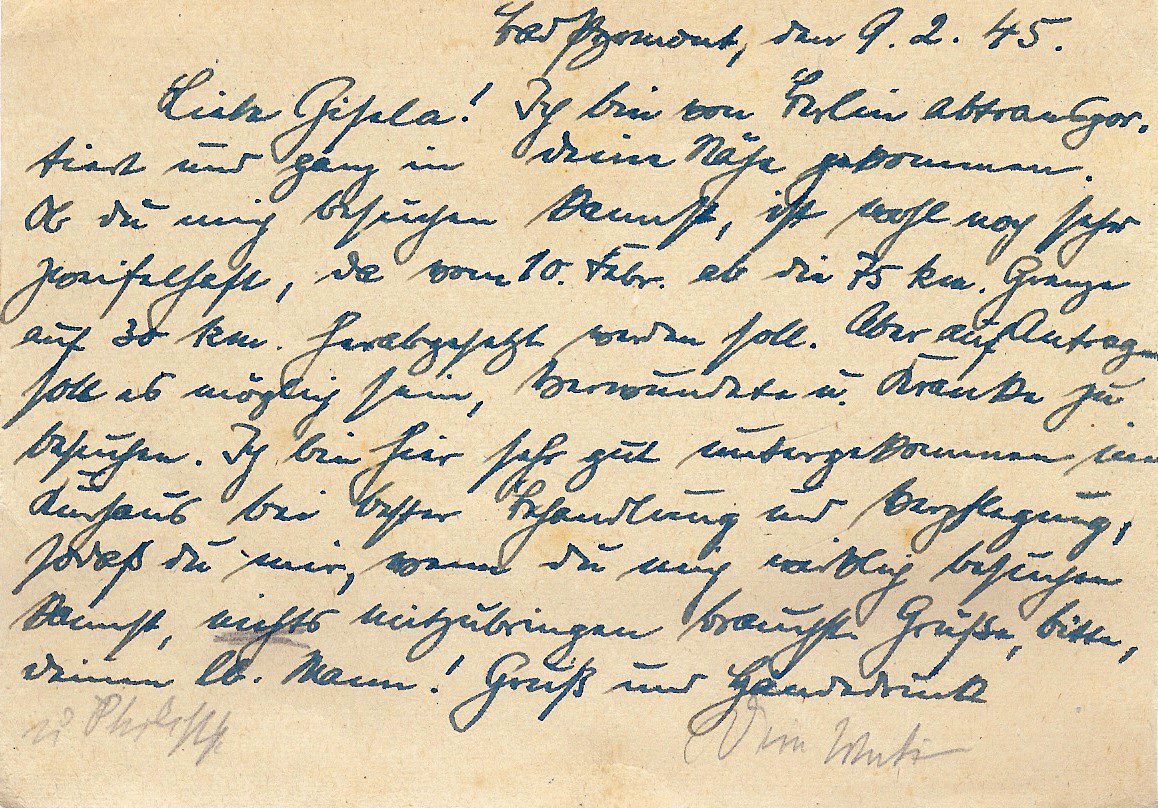 Bad Pyrmont, den 9. 2. 45.
Liebe Gisela! Ich bin von Berlin abtranspor-
tiert und ganz in deine Nähe gekommen.
Ob du mich besuchen kannst, ist wohl noch sehr
zweifelhaft, da vom 10. Febr. ab die 75 km. Grenze
auf 30 km. herabgesetzt werden soll. Aber auf Antrag
soll es möglich sein, Verwundete u. Kranke zu
besuchen. Ich bin hier sehr gut untergekommen im
Kurhaus bei bester Behandlung und Verpflegung,
sodaß du mir, wenn du mich wirklich besuchen
kannst, nichts mitzubringen brauchst. Grüße, bitte,
deinen lb. Mann! Gruß und Händedruck
Dein